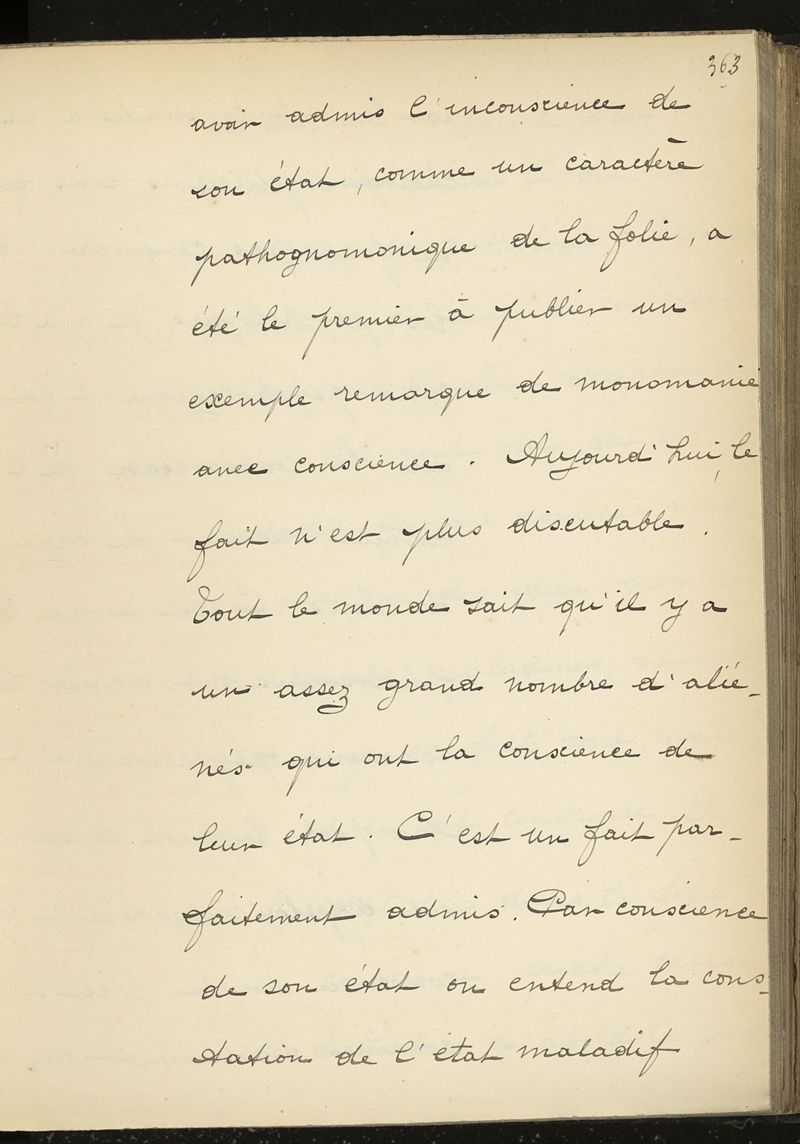 363
avoir admis l'inconscience de
son état, comme un caractère
pathognomonique de la folie, a
été le premier à publier un
exemple remarque de monomanie
avec conscience. Aujourd'hui, le
fait n'est plus discutable.
Tout le monde sait qu'il y a
un assez grand nombre d'alié-
nés qui ont la conscience de
leur état. C'est un fait par-
faitement admis. Par conscience
de son état on entend la cons-
tation de l'état maladif